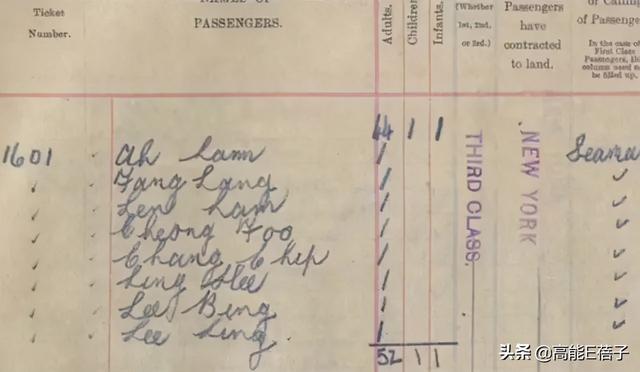 Ticket Number.
NAMES OF PASSENGERS.
Adults.
Children
Infants.
(Whether 1st, 2nd, or 3rd.)
Passengers have contracted to land.
or Calling of Passenge
In the case of First Class Passengers, this column need not be filled up.
44 1 1
1601 Ah Lam Seama
Fang Lang
Len Lam
Cheong Foo
Chang Chip
Ling Hee
Lee Bing
Lee Ling
52 1 1
THIRD CLASS.
NEW YORK
头条 @高能E蓓子